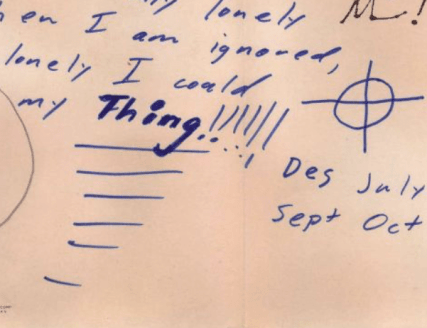 lonely M!
hen I am ignored,
lonely I could
my Thing!!!!!!
Des July
Sept Oct